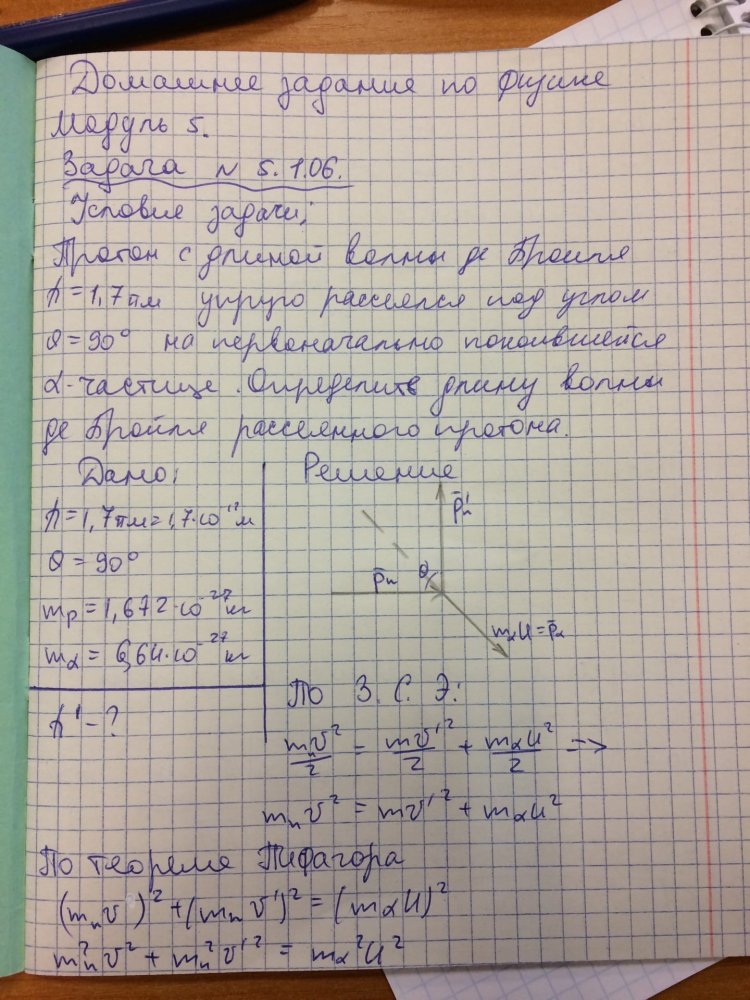 Домашнее задание по физике
Модуль 5.
Задача № 5.1.06.
Условие задачи:
Протон с длиной волны де Бройля
λ = 1,7 пм упруго рассеялся под углом
θ = 90° на первоначально покоившейся
α-частице. Определить длину волны
де Бройля рассеянного протона.
Дано:
λ = 1,7 пм = 1,7·10⁻¹² м
θ = 90°
mp = 1,672·10⁻²⁷ кг
mα = 6,64·10⁻²⁷ кг
λ' - ?
Решение
p̄п'
θ
p̄п
mαu = p̄α
По З. С. Э:
mпv²/2 = mv'²/2 + mαu²/2 =>
mпv² = mv'² + mαu²
По теореме Пифагора
(mпv)² + (mпv')² = (mαu)²
mп²v² + mп²v'² = mα²u²